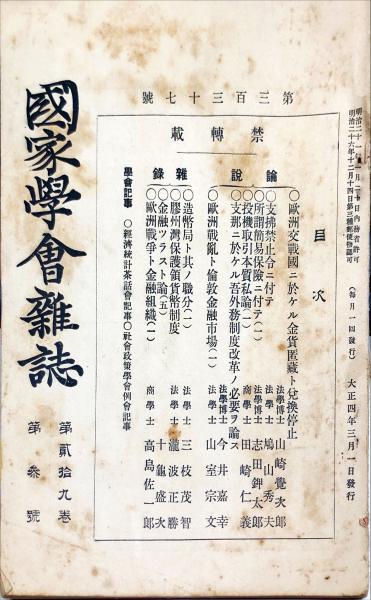 明治二十 年 月二十 日内務省許可
明治二十六年十二月十四日第三種郵便物認可
(毎月一回發行) 大正四年三月一日發行
第三百三十七號
禁轉載
目次
論說
○歐洲交戰國ニ於ケル金貨匿藏ト兌換停止 法學博士 山崎覺次郎
○支拂禁止令ニ付テ 法學士 鳩山秀夫
○所謂簡易保險ニ付テ(一) 法學博士 志田鉀太郎
○投機取引本質私論(二) 商學士 田崎仁義
○支那ニ於ケル吾外務制度改革ノ必要ヲ論ス 法學博士 今井嘉幸
○歐洲戰亂ト倫敦金融市場(一) 法學士 山室宗文
雜錄
○造幣局ト其ノ職分(二) 法學士 三枝茂智
○膠州灣保護領貨幣制度 法學士 瀧波正勝
○金融ツラスト論(五) 十龜盛次
○歐洲戰爭ト金融組織(一) 商學士 高島佐一郎
學會記事 ○經濟統計茶話會記事○社會政策學會例會記事
國家學會雜誌
第貳拾九卷 第參號